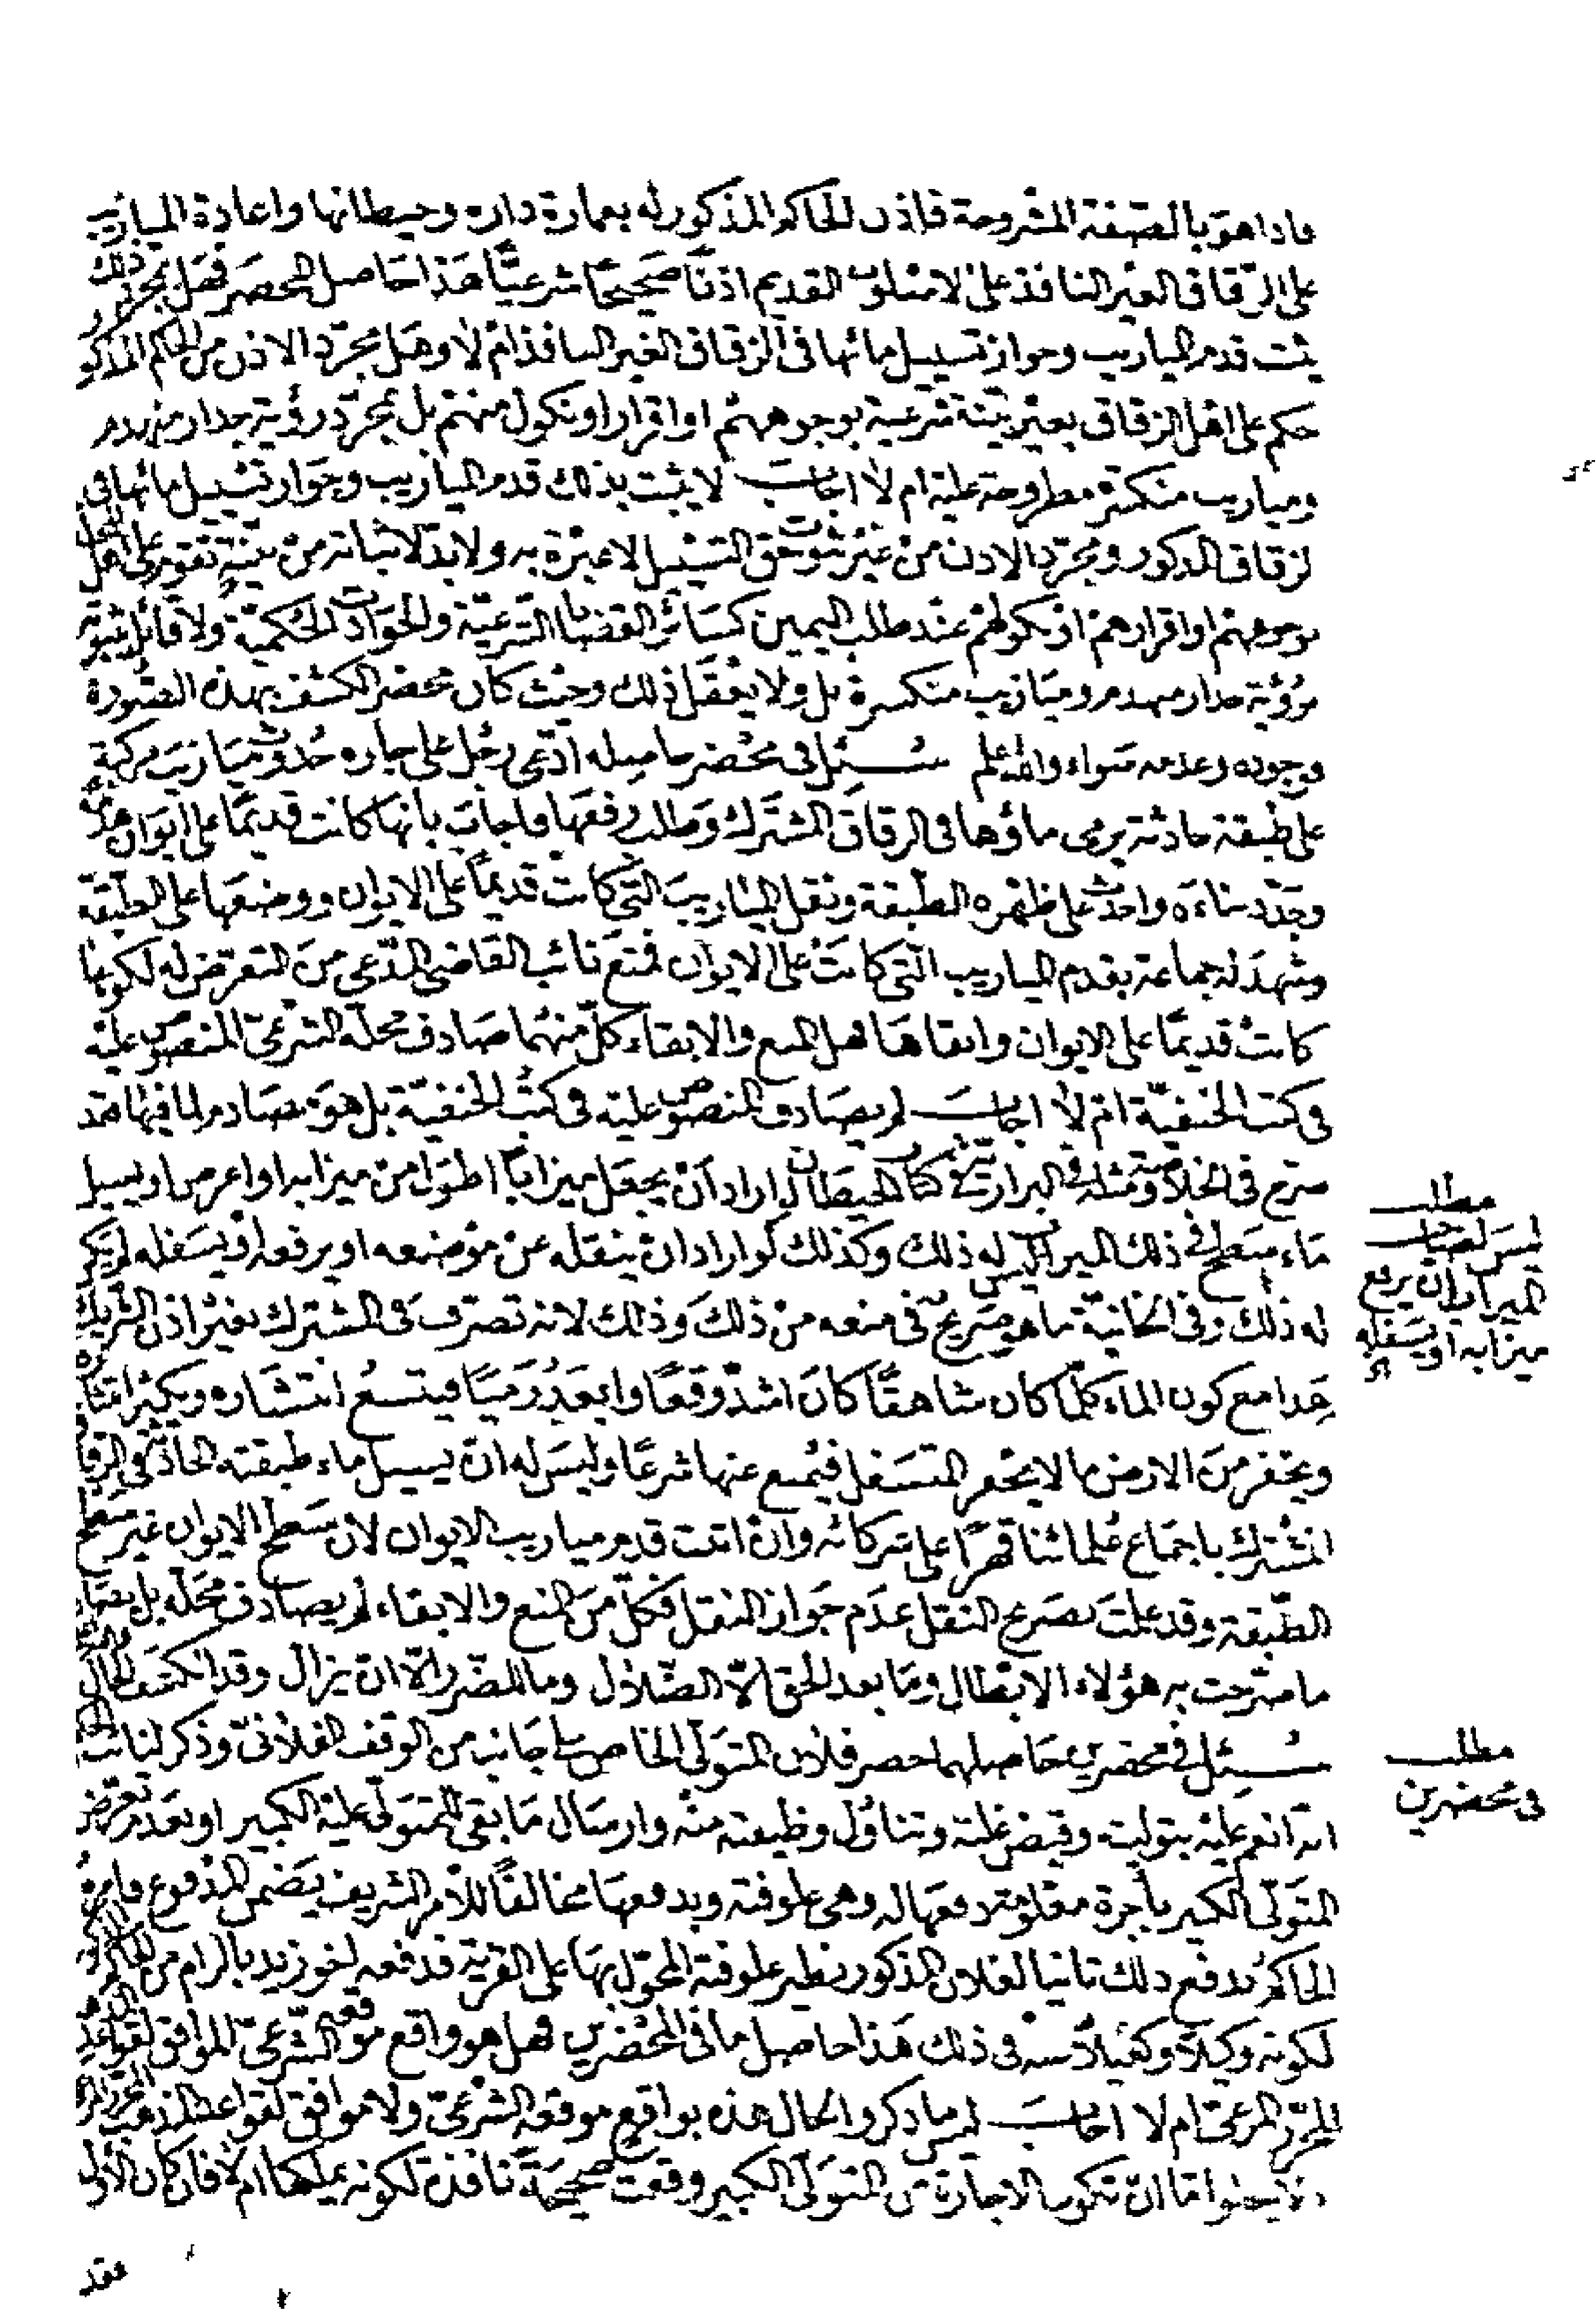 فاذا هو بالصفة المشروحة فاذن الحاكم المذكور له بعمارة داره وحيطانها واعادة الميازيب
على الزقاق الغير النافذ على الاسلوب القديم اذنا صحيحا شرعيا هذا حاصل المحضر فهل بمجرد ذلك
يثبت قدم الميازيب وجواز تسييل مائها في الزقاق الغير النافذ ام لا وهل مجرد الاذن من الحاكم المذكور
حكم على اهل الزقاق بغير بينة شرعية بوجوههم او اقرار او نكول منهم بل بمجرد رؤية جدار منهدم
وميازيب منكسرة مطروحة عليه ام لا اجاب لا يثبت بذلك قدم الميازيب وجواز تسييل مائها في
الزقاق المذكور ومجرد الاذن من غير ثبوت حق التسييل لا عبرة به ولا بد لاثباته من بينة تقوم على اهل
بوجوههم او اقرارهم او نكولهم عند طلب اليمين كسائر القضايا الشرعية والحوادث الحكمية ولا قائل بثبوته
برؤية جدار منهدم وميازيب منكسرة بل ولا يعقل ذلك وحيث كان محضر الكشف بهذه الصورة
وجوده وعدمه سواء والله اعلم سئل في محضر حاصله ادعى رجل على جاره حدوث ميازيب مركبة
على طبقة حادثة يرمى ماؤها في الزقاق المشترك وطلب رفعها فاجاب بانها كانت قديما على ايوان هدمه
وجدد بناءه واحدث على ظهره الطبقة ونقل الميازيب التي كانت قديما على الايوان ووضعها على الطبقة
وشهد له جماعة بقدم الميازيب التي كانت على الايوان فمنع نائب القاضي المدعي من التعرض له لكونها
كانت قديما على الايوان وابقاها هل المنع والابقاء كل منهما صادف محله الشرعي المنصوص عليه
في كتب الحنفية ام لا اجاب لم يصادف المنصوص عليه في كتب الحنفية بل هو مصادم لما فيها فقد
صرح في الخلاصة ومثله في البزازية في كتاب الحيطان لو اراد ان يجعل ميزابا اطول من ميزابه او اعرض او يسيل
ماء سطح في ذلك الميزاب ليس له ذلك وكذلك لو اراد ان ينقله عن موضعه او يرفعه او يسفله لم يكن
له ذلك وفي الخانية ما هو صريح في منعه من ذلك وذلك لانه تصرف في المشترك بغير اذن الشريك
هذا مع كون الماء كلما كان شاهقا كان اشد وقعا وابعد رميا فيتسع انتشاره ويكثر
ويحفر من الارض ما لا يحفر المتسفل فيمنع عنها شرعا وليس له ان يسيل ماء طبقته الحادثة في الزقاق
المشترك باجماع علمائنا قهرا على شركائه وان اثبت قدم ميازيب الايوان لان سطح الايوان غير سطح
الطبقة وقد علمت بصريح النقل عدم جواز النقل فكل من المنع والابقاء لم يصادف محله بل
ما صرحت به هؤلاء الابطال وما بعد الحق الا الضلال وما للضرر الا ان يزال وقد انكشف الحال
سئل في محضرين حاصلهما حضر فلان المتولي الخاص على جانب من الوقف الفلاني وذكر لنائب
انه انعم عليه بتوليته وقبض غلته وتناول وظيفته منه وارسال ما بقي للمتولي عليه الكبير او بعدم تعرض
المتولي الكبير باجرة معلومة دفعها له وهي علوفته وبدفعها مخالفا للامر الشريف يضمن المدفوع فامره
الحاكم بدفع ذلك ثانيا لفلان المذكور نظير علوفته المحول بها على القرية فدفعه لنحو زيد بالزام من الحاكم
لكونه وكيلا وكفيلا عنه في ذلك هذا حاصل ما في المحضرين فهل هو واقع موقعه الشرعي الموافق لقواعد
المحرر المرعي ام لا اجاب ليس ما ذكر والحال هذه بواقع موقعه الشرعي ولا موافق لقواعد المذهب
لا يخلو اما ان تكون الاجارة من المتولي الكبير وقعت صحيحة نافذة لكونه يملكها ام لا فان كان الاول
عقد
مطلب
ليس لصاحب
الميزاب ان يرفع
ميزابه او يسفله
مطلب
في محضرين